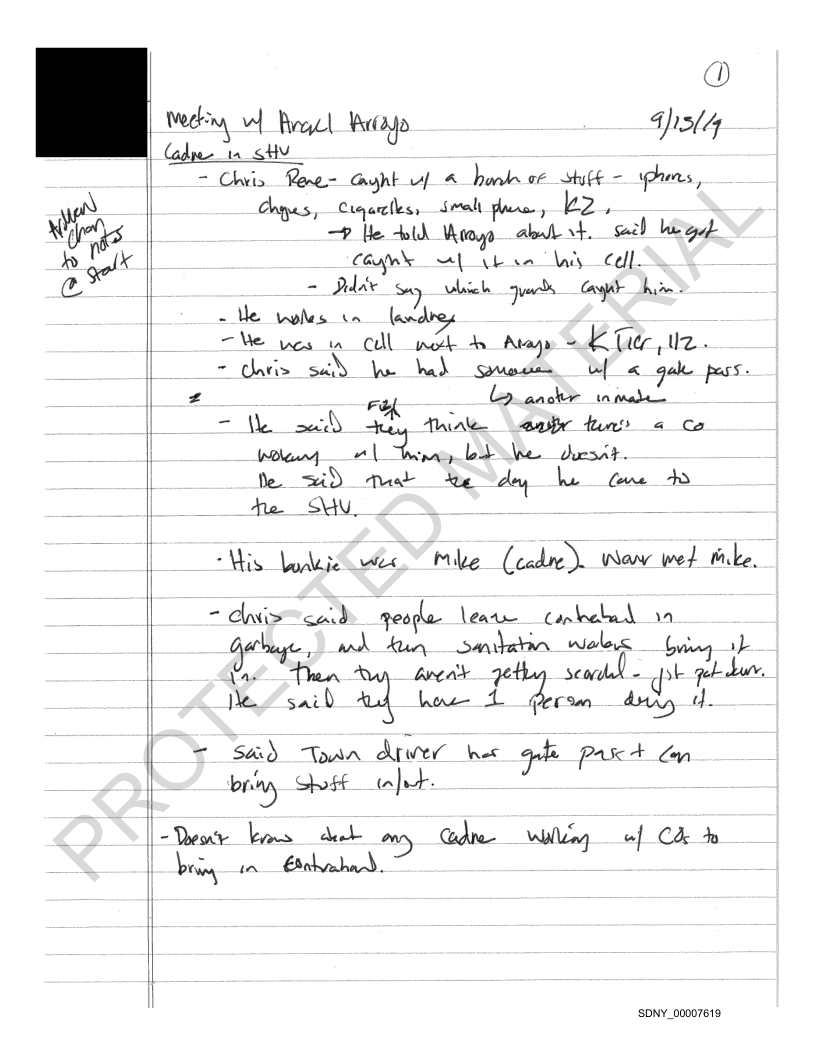 ①
Meeting w/ Angel Arroyo 9/13/19
Cadre in SHU
- Chris Rene - caught w/ a bunch of stuff - iphones,
chgres, cigarettes, small phone, K2.
→ He told Arroyo about it. said he got
caught w/ it in his cell.
- Didn't say which guards caught him.
chan
to notes
@ start
- He works in laundry
- He was in cell next to Arroyo - K Tier, 112.
- Chris said he had someone w/ a gate pass.
↳ another inmate
- He said they think there's a CO
working w/ him, but he doesn't.
He said that the day he came to
the SHU.
- His bunkie was Mike (cadre). Never met Mike.
- Chris said people leave contraband in
garbage, and then sanitation workers bring it
in. Then they aren't getting searched - jst pat down.
He said they have 1 person doing it.
- Said Town driver has gate pass + can
bring stuff in/out.
- Doesn't know about any cadre working w/ COs to
bring in contraband.
PROTECTED MATERIAL
SDNY_00007619